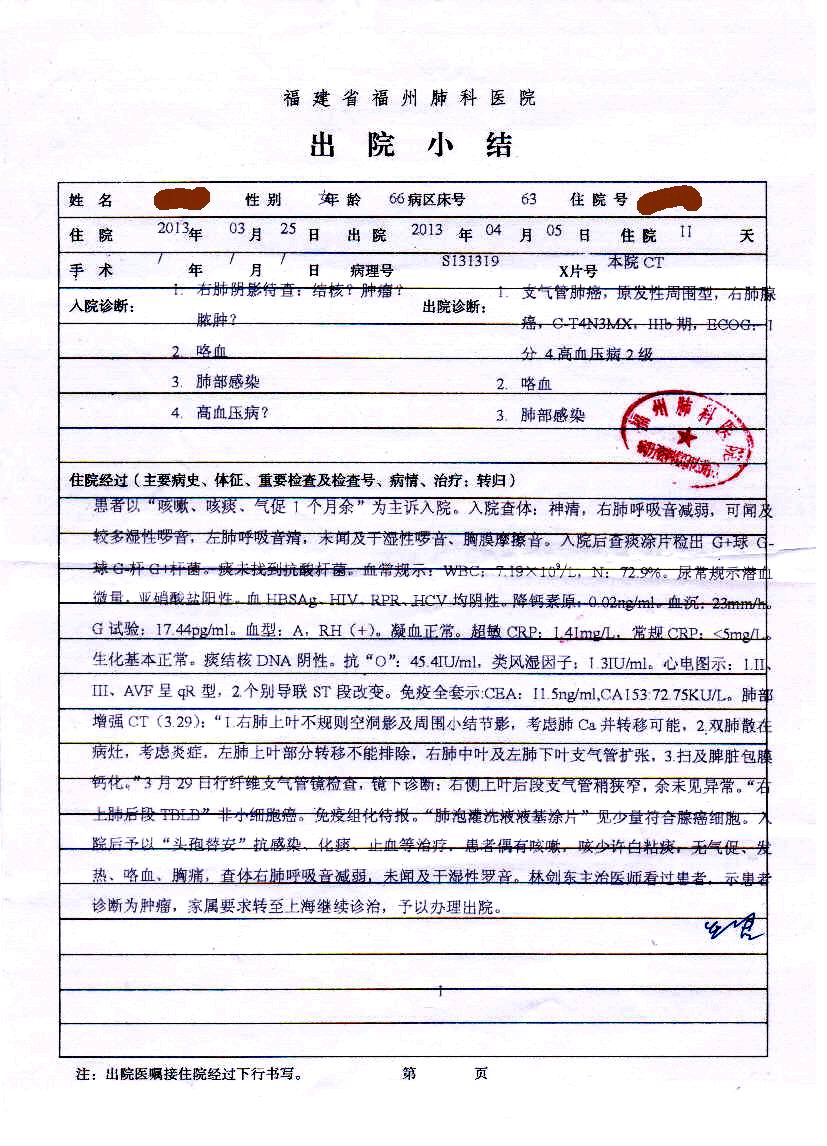 福建省福州肺科医院
出院小结
姓名 性别 女 年龄 66 病区床号 63 住院号
住院 2013年 03月 25日 出院 2013年 04月 05日 住院 11 天
手术 /年 /月 /日 病理号 S131319 X片号 本院CT
入院诊断: 1. 右肺阴影待查:结核?肿瘤? 出院诊断: 1. 支气管肺癌,原发性周围型,右肺腺
脓肿? 癌,C-T4N3MX,IIIb期,ECOG:1
2. 咯血 分 4.高血压病2级
3. 肺部感染 2. 咯血
4. 高血压病? 3. 肺部感染
福州肺科医院
住院经过(主要病史、体征、重要检查及检查号、病情、治疗;转归)
患者以“咳嗽、咳痰、气促1个月余”为主诉入院。入院查体:神清,右肺呼吸音减弱,可闻及
较多湿性啰音,左肺呼吸音清,未闻及干湿性啰音、胸膜摩擦音。入院后查痰涂片检出 G+球 G-
球 G-杆 G+杆菌。痰未找到抗酸杆菌。血常规示:WBC:7.19×10⁹/L,N:72.9%。尿常规示潜血
微量,亚硝酸盐阳性。血 HBSAg、HIV、RPR、HCV 均阴性。降钙素原:0.02ng/ml。血沉:23mm/h。
G试验:17.44pg/ml。血型:A,RH(+)。凝血正常。超敏CRP:1.41mg/L,常规CRP:<5mg/L。
生化基本正常。痰结核DNA阴性。抗“O”:45.4IU/ml,类风湿因子:1.3IU/ml。心电图示:1.II、
III、AVF呈qR型,2.个别导联ST段改变。免疫全套示:CEA:11.5ng/ml,CA153:72.75KU/L。肺部
增强CT(3.29):“1.右肺上叶不规则空洞影及周围小结节影,考虑肺Ca并转移可能,2.双肺散在
病灶,考虑炎症,左肺上叶部分转移不能排除,右肺中叶及左肺下叶支气管扩张,3.扫及脾脏包膜
钙化。”3月29日行纤维支气管镜检查,镜下诊断:右侧上叶后段支气管稍狭窄,余未见异常。“右
上肺后段TBLB”非小细胞癌。免疫组化待报。“肺泡灌洗液液基涂片”见少量符合腺癌细胞。入
院后予以“头孢替安”抗感染、化痰、止血等治疗,患者偶有咳嗽,咳少许白粘痰,无气促、发
热、咯血、胸痛,查体右肺呼吸音减弱,未闻及干湿性罗音。林剑东主治医师看过患者,示患者
诊断为肿瘤,家属要求转至上海继续诊治,予以办理出院。
1
注:出院医嘱接住院经过下行书写。 第 页